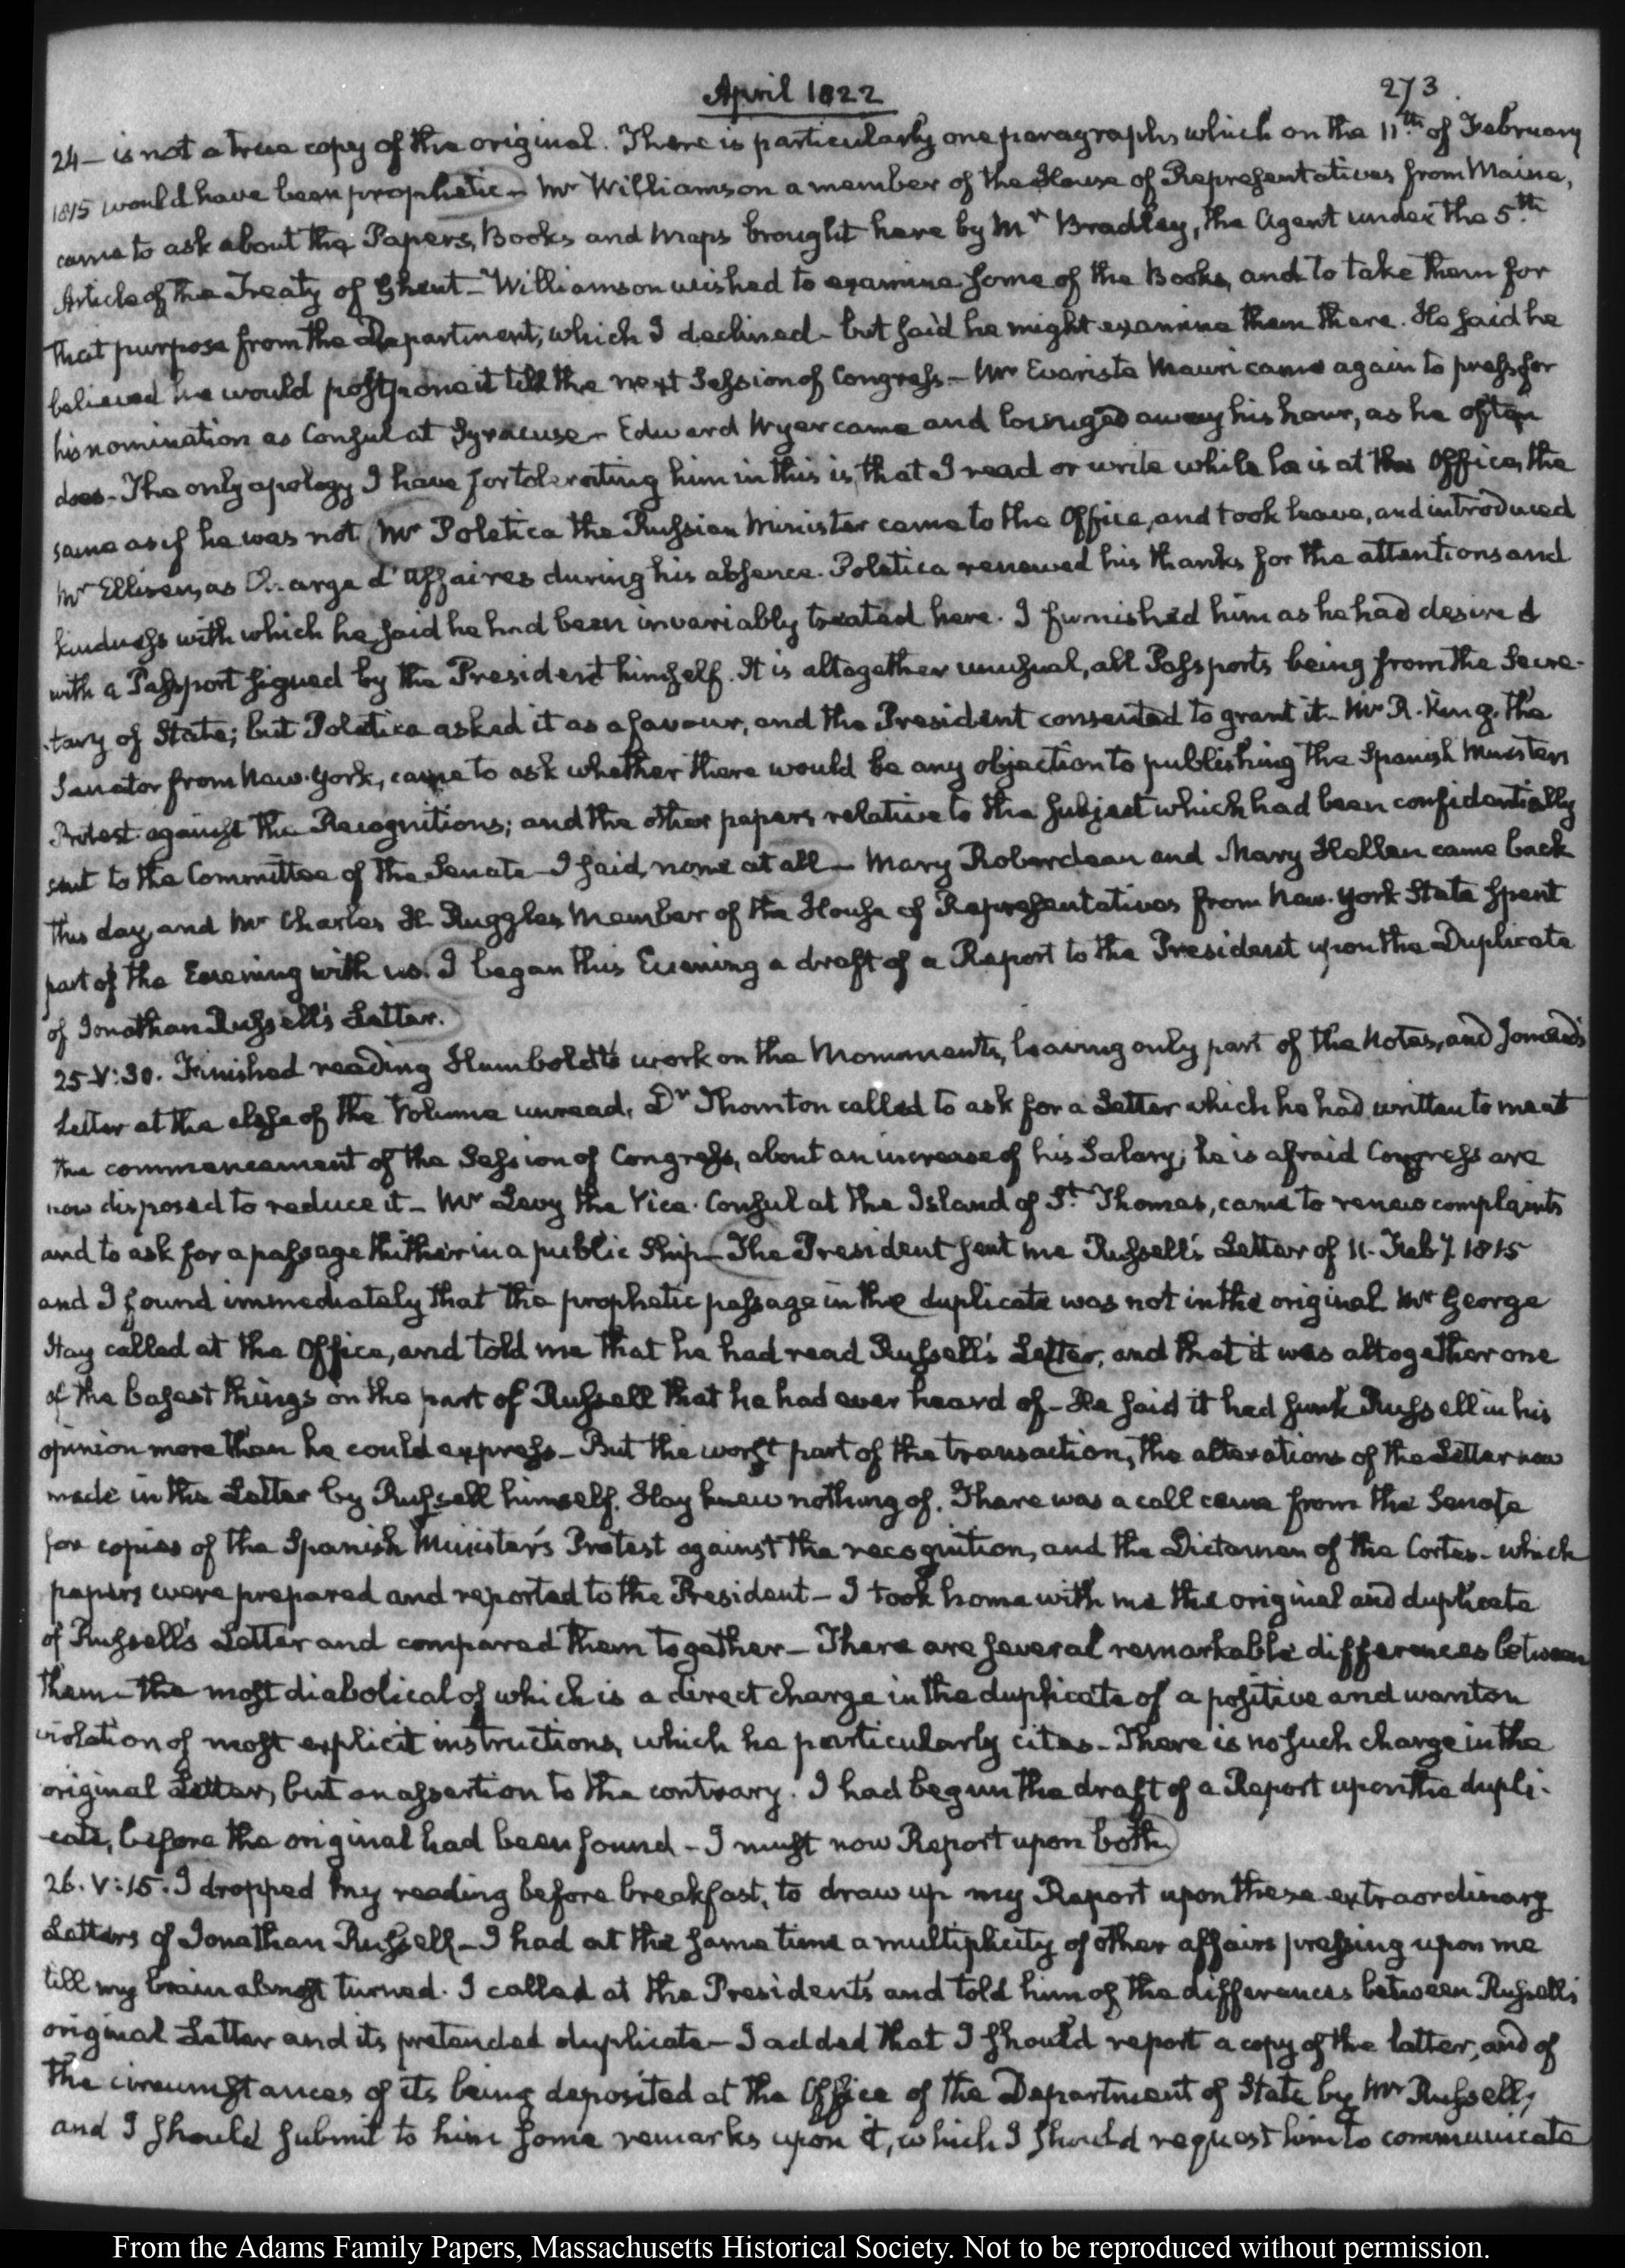 April 1822
273.
24 — is not a true copy of the original. There is particularly one paragraph, which on the 11th. of February
1815 would have been prophetic — Mr Williamson a member of the House of Representatives from Maine,
came to ask about the Papers, Books and Maps brought here by Mr. Bradley, the Agent under the 5th.
Article of the Treaty of Ghent — Williamson wished to examine some of the Books, and to take them for
that purpose from the Department; which I declined — but said he might examine them there. He said he
believed he would postpone it till the next Session of Congress — Mr Evariste Mauri came again to press for
his nomination as Consul at Syracuse — Edward Wyer came and lounged away his hour, as he often
does — The only apology I have for tolerating him in this is, that I read or write while he is at the Office, the
same as if he was not. Mr Poletica the Russian Minister came to the Office, and took leave, and introduced
Mr Ellisen, as Charge d'Affaires during his absence. Poletica renewed his thanks for the attentions and
kindness with which he said he had been invariably treated here. I furnished him as he had desired
with a Passport signed by the President himself. It is altogether unusual, all Passports being from the Secre-
-tary of State; but Poletica asked it as a favour, and the President consented to grant it — Mr R. King, the
Senator from New-York, came to ask whether there would be any objection to publishing the Spanish Ministers
Protest against the Recognitions; and the other papers relative to the subject which had been confidentially
sent to the Committee of the Senate — I said, none at all — Mary Roberdeau and Mary Hellen came back
this day, and Mr Charles H. Ruggles, Member of the House of Representatives from New-York State spent
part of the Evening with us. I began this Evening a draft of a Report to the President upon the Duplicate
of Jonathan Russell's Letter.
25. V:30. Finished reading Humboldt's work on the Monuments, leaving only part of the Notes, and Jomard's
Letter at the close of the Volume unread. Dr Thornton called to ask for a Letter which he had written to me at
the commencement of the Session of Congress, about an increase of his Salary; he is afraid Congress are
now disposed to reduce it — Mr Levy the Vice-Consul at the Island of St. Thomas, came to renew complaints
and to ask for a passage thither in a public Ship — The President sent me Russell's Letter of 11. Feby. 1815
and I found immediately that the prophetic passage in the duplicate was not in the original. Mr George
Hay called at the Office, and told me that he had read Russell's Letter, and that it was altogether one
of the basest things on the part of Russell that he had ever heard of — He said it had sunk Russell in his
opinion more than he could express — But the worst part of the transaction, the alterations of the Letter now
made in the Letter by Russell himself, Hay knew nothing of. There was a call came from the Senate
for copies of the Spanish Minister's Protest against the recognition, and the Dictamen of the Cortes — which
papers were prepared and reported to the President — I took home with me the original and duplicate
of Russell's Letter and compared them together — There are several remarkable differences between
them — the most diabolical of which is a direct charge in the duplicate of a positive and wanton
violation of most explicit instructions, which he particularly cites — There is no such charge in the
original Letter, but an assertion to the contrary. I had begun the draft of a Report upon the dupli-
-cate, before the original had been found — I must now Report upon both.
26. V:15. I dropped my reading before breakfast, to draw up my Report upon these extraordinary
Letters of Jonathan Russell — I had at the same time a multiplicity of other affairs pressing upon me
till my brain almost turned. I called at the President's and told him of the differences between Russell's
original Letter and its pretended duplicate — I added that I should report a copy of the latter, and of
the circumstances of its being deposited at the Office of the Department of State by Mr Russell,
and I should submit to him some remarks upon it, which I should request him to communicate
From the Adams Family Papers, Massachusetts Historical Society. Not to be reproduced without permission.